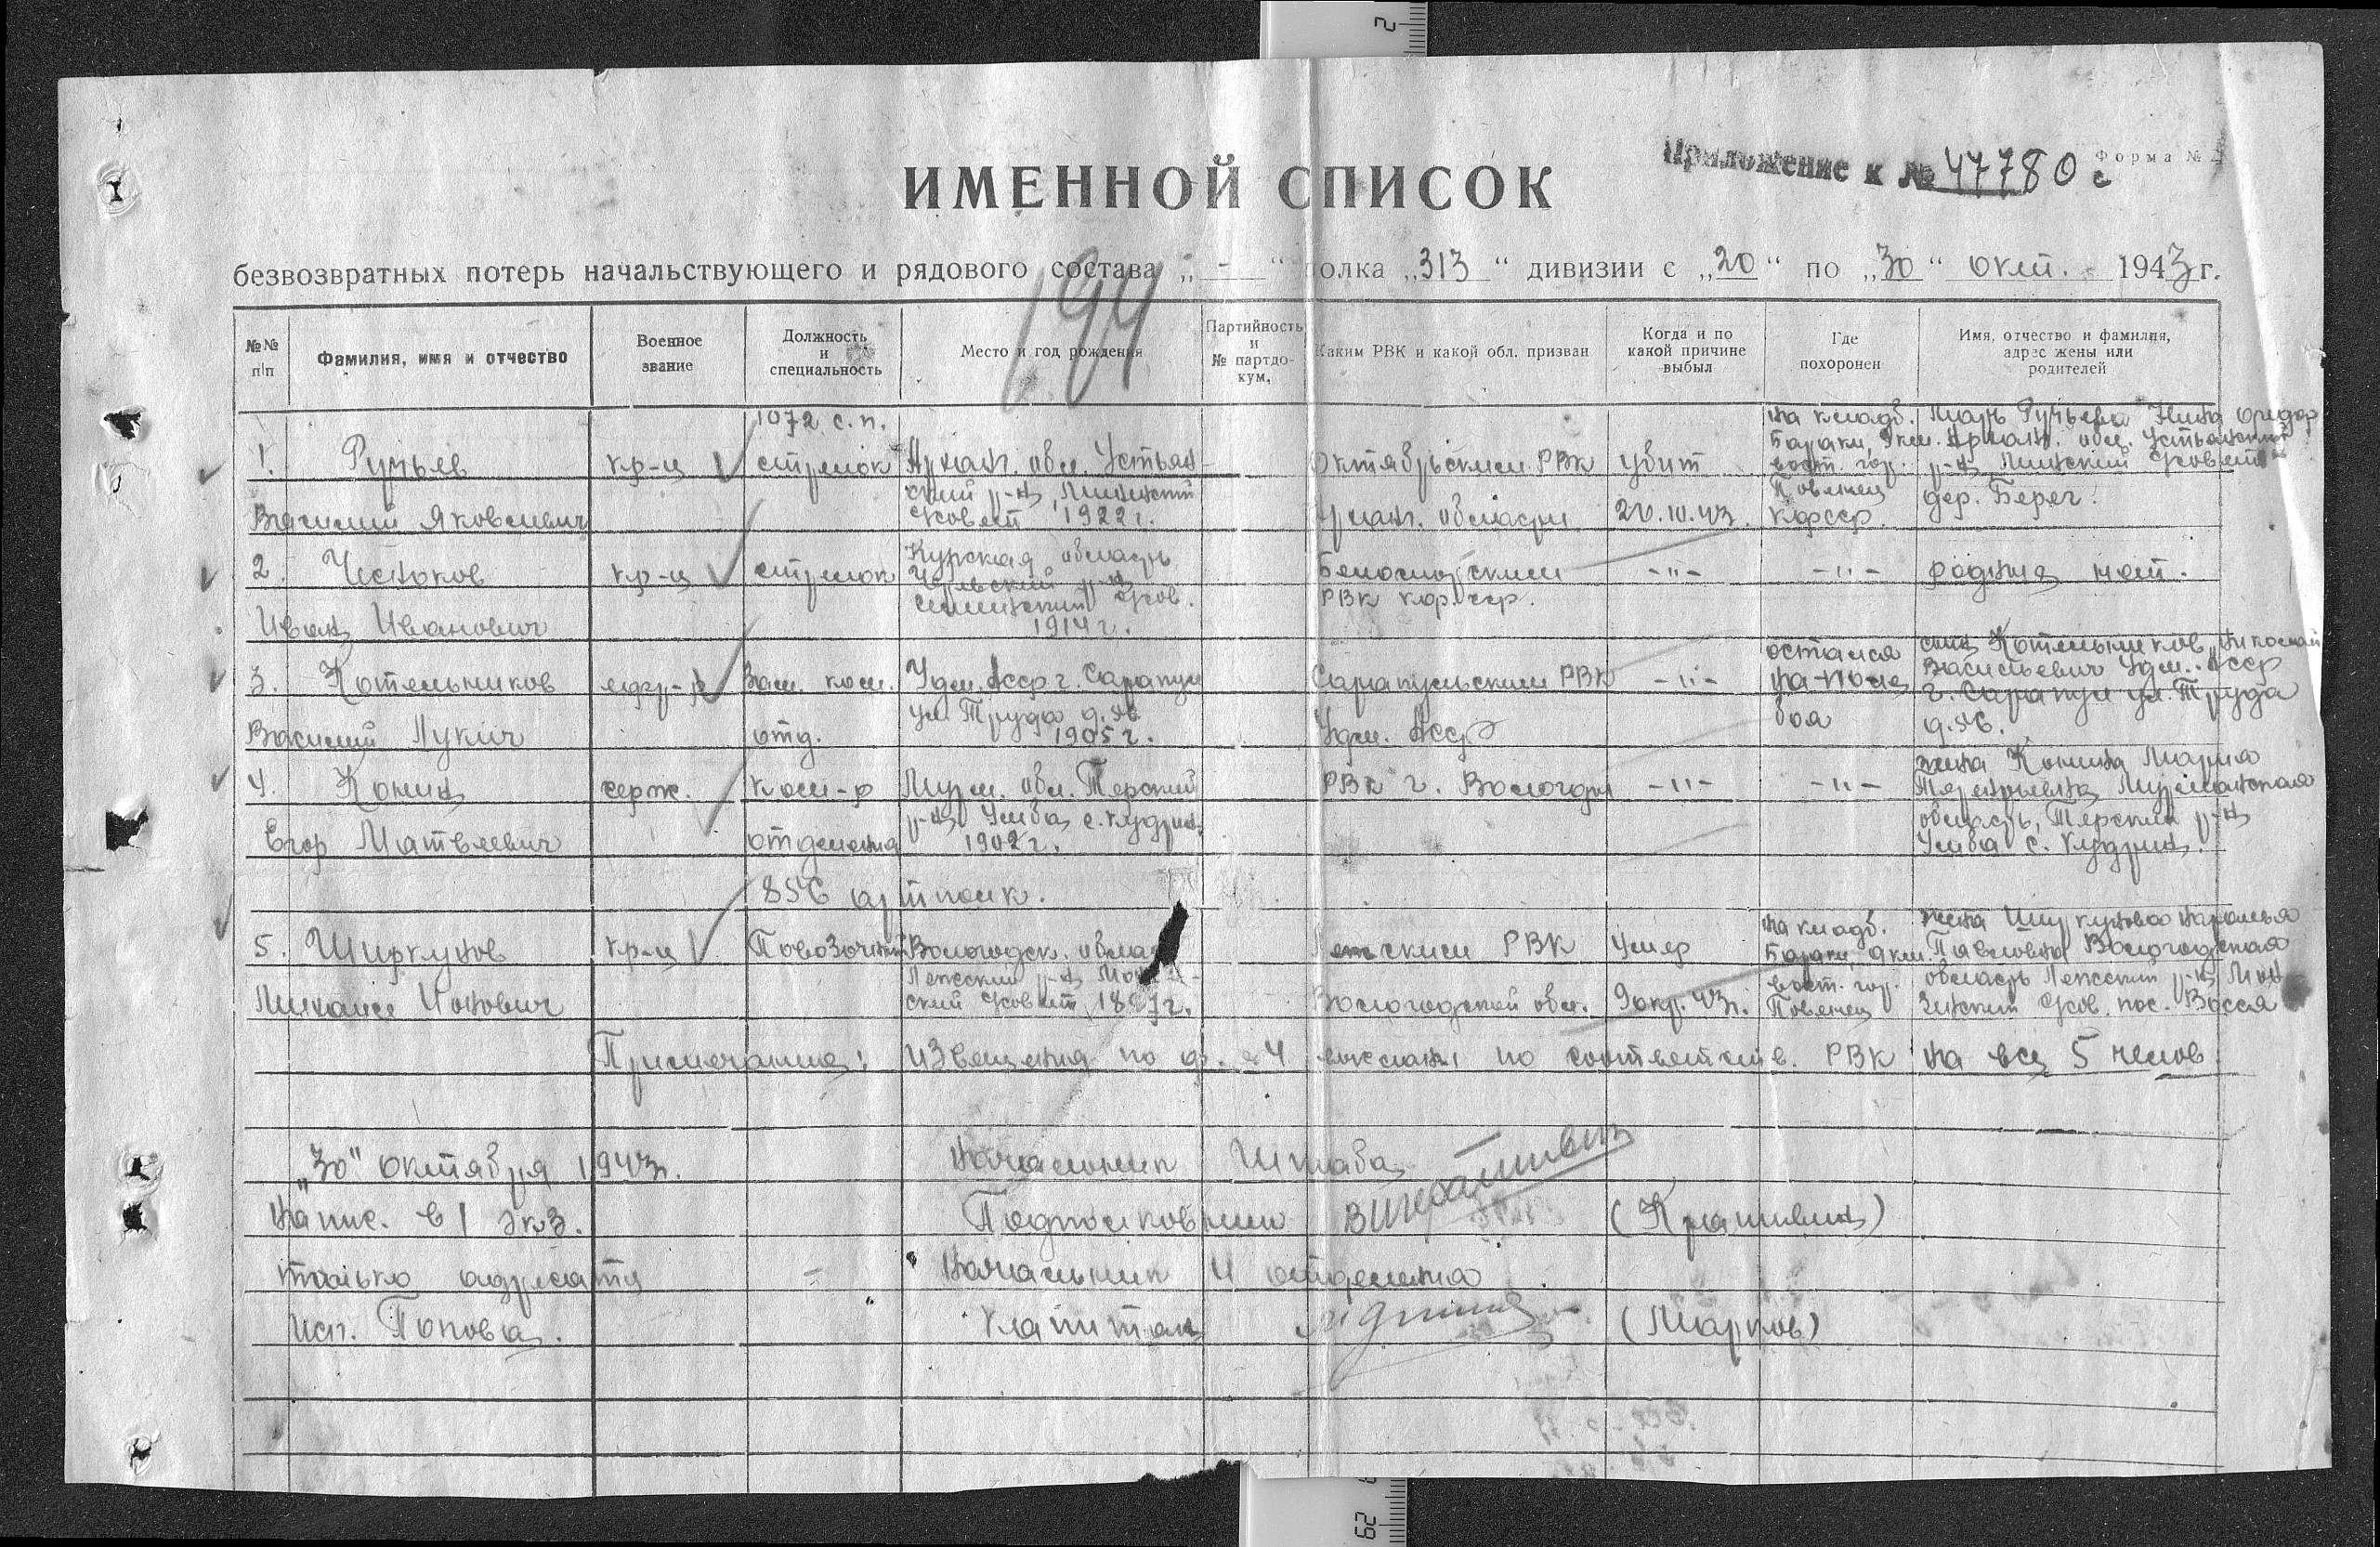 Приложение к № 47780 с
Форма №
ИМЕННОЙ СПИСОК
безвозвратных потерь начальствующего и рядового состава „ - “ полка „313“ дивизии с „20“ по „30“ окт. 1943 г.
194
№№ п/п
Фамилия, имя и отчество
Военное звание
Должность и специальность
Место и год рождения
Партийность и № партдокум.
Каким РВК и какой обл. призван
Когда и по какой причине выбыл
Где похоронен
Имя, отчество и фамилия, адрес жены или родителей
1072 с.п.
1. Ручьев
Василий Яковлевич
кр-ц
стрелок
Архан. обл. Устьян
ский р-н
совет 1922 г.
Октябрьским РВК
Архан. области
убит
20.10.43.
на кладб.
Бараки, 9 км.
вост. гор.
Повенец
КФССР.
Мать Ручьева Нина
Архан. обл. Устьянский
р-н совет
дер. Берег.
2. Чесноков
Иван Иванович
кр-ц
стрелок
Курская область
сов.
1914 г.
Беломорским
РВК КФССР.
-"-
-"-
родных нет.
3. Котельников
Василий Лукич
ефр-р
Зам. ком.
отд.
Удм. АССР г. Сарапул
ул. Труда д.
1905 г.
Сарапульским РВК
Удм. АССР
-"-
остался
на поле
боя
сын Котельников Николай
Васильевич Удм. АССР
г. Сарапул ул. Труда
4. Конин
Егор Матвеевич
серж.
ком-р
отделения
Мурм. обл. Терский
р-н Умба с. Кудрин
1902 г.
РВК г. Вологды
-"-
-"-
жена Конина Мария
Терентьевна Мурманская
область, Терский р-н
Умба с. Кудрин.
856 арт полк.
5. Ширкунов
Михаил Ионович
кр-ц
Повозочный
Вологодск. облас
Лежский р-н
ский совет 1897 г.
Лежским РВК
Вологодской обл.
Умер
9 окт. 43г.
на кладб.
Бараки 9 км.
вост. гор.
Повенец
жена Ширкунова
Павловна Вологодская
область Лежский р-н Мон
зенский сов. пос. Восья
Примечание: извещения по ф. № 4 высланы по соответств. РВК на всех 5 челов.
„30“ октября 1943г.
Начальник Штаба
Напис. в 1 экз.
Подполковник
(Крашивин)
только адресату
Начальник 4 отделения
исп. Попова.
Капитан
(Марков)